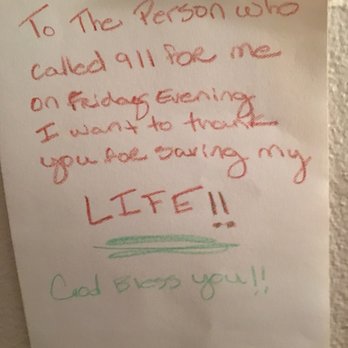 To The Person who
called 911 for me
on Friday Evening
I want to thank
you for saving my
LIFE!!
God Bless you!!